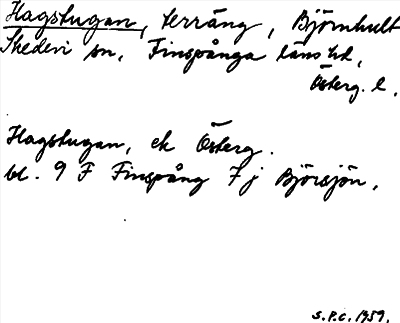 Hagstugan, terräng, Björnhult
Skedevi sn, Finspånga läns hd,
Österg. l.
Hagstugan, ek Österg.
bl. 9 F Finspång 7 j Björsjön.
S.P.C. 1959.